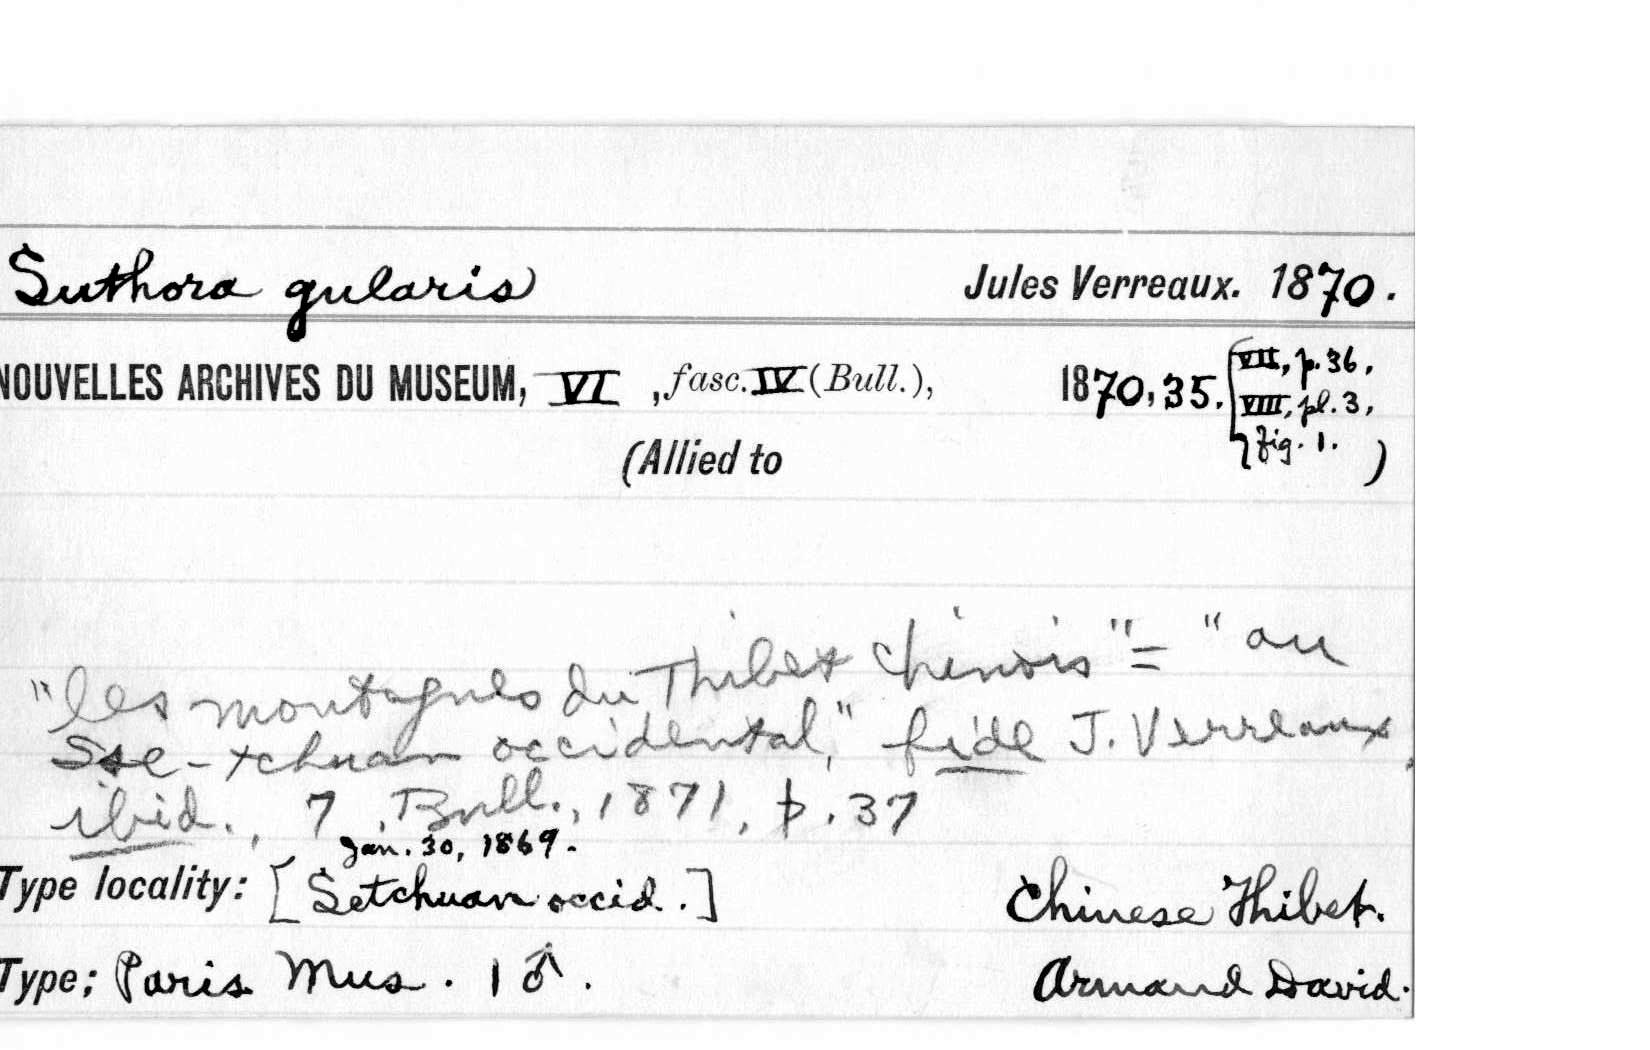 Suthora gularis Jules Verreaux. 1870.
NOUVELLES ARCHIVES DU MUSEUM, VI, fasc. IV (Bull.), 1870, 35. [VII, p. 36,
VIII, pl. 3,
fig. 1.
(Allied to )
"les montagnes du Thibet chinois" = "au
Sse-tchuan occidental," fide J. Verreaux,
ibid., 7, Bull., 1871, p. 37
Jan. 30, 1869.
Type locality: [Setchuan occid.] Chinese Thibet.
Type; Paris Mus. 1 ♂. Armand David.